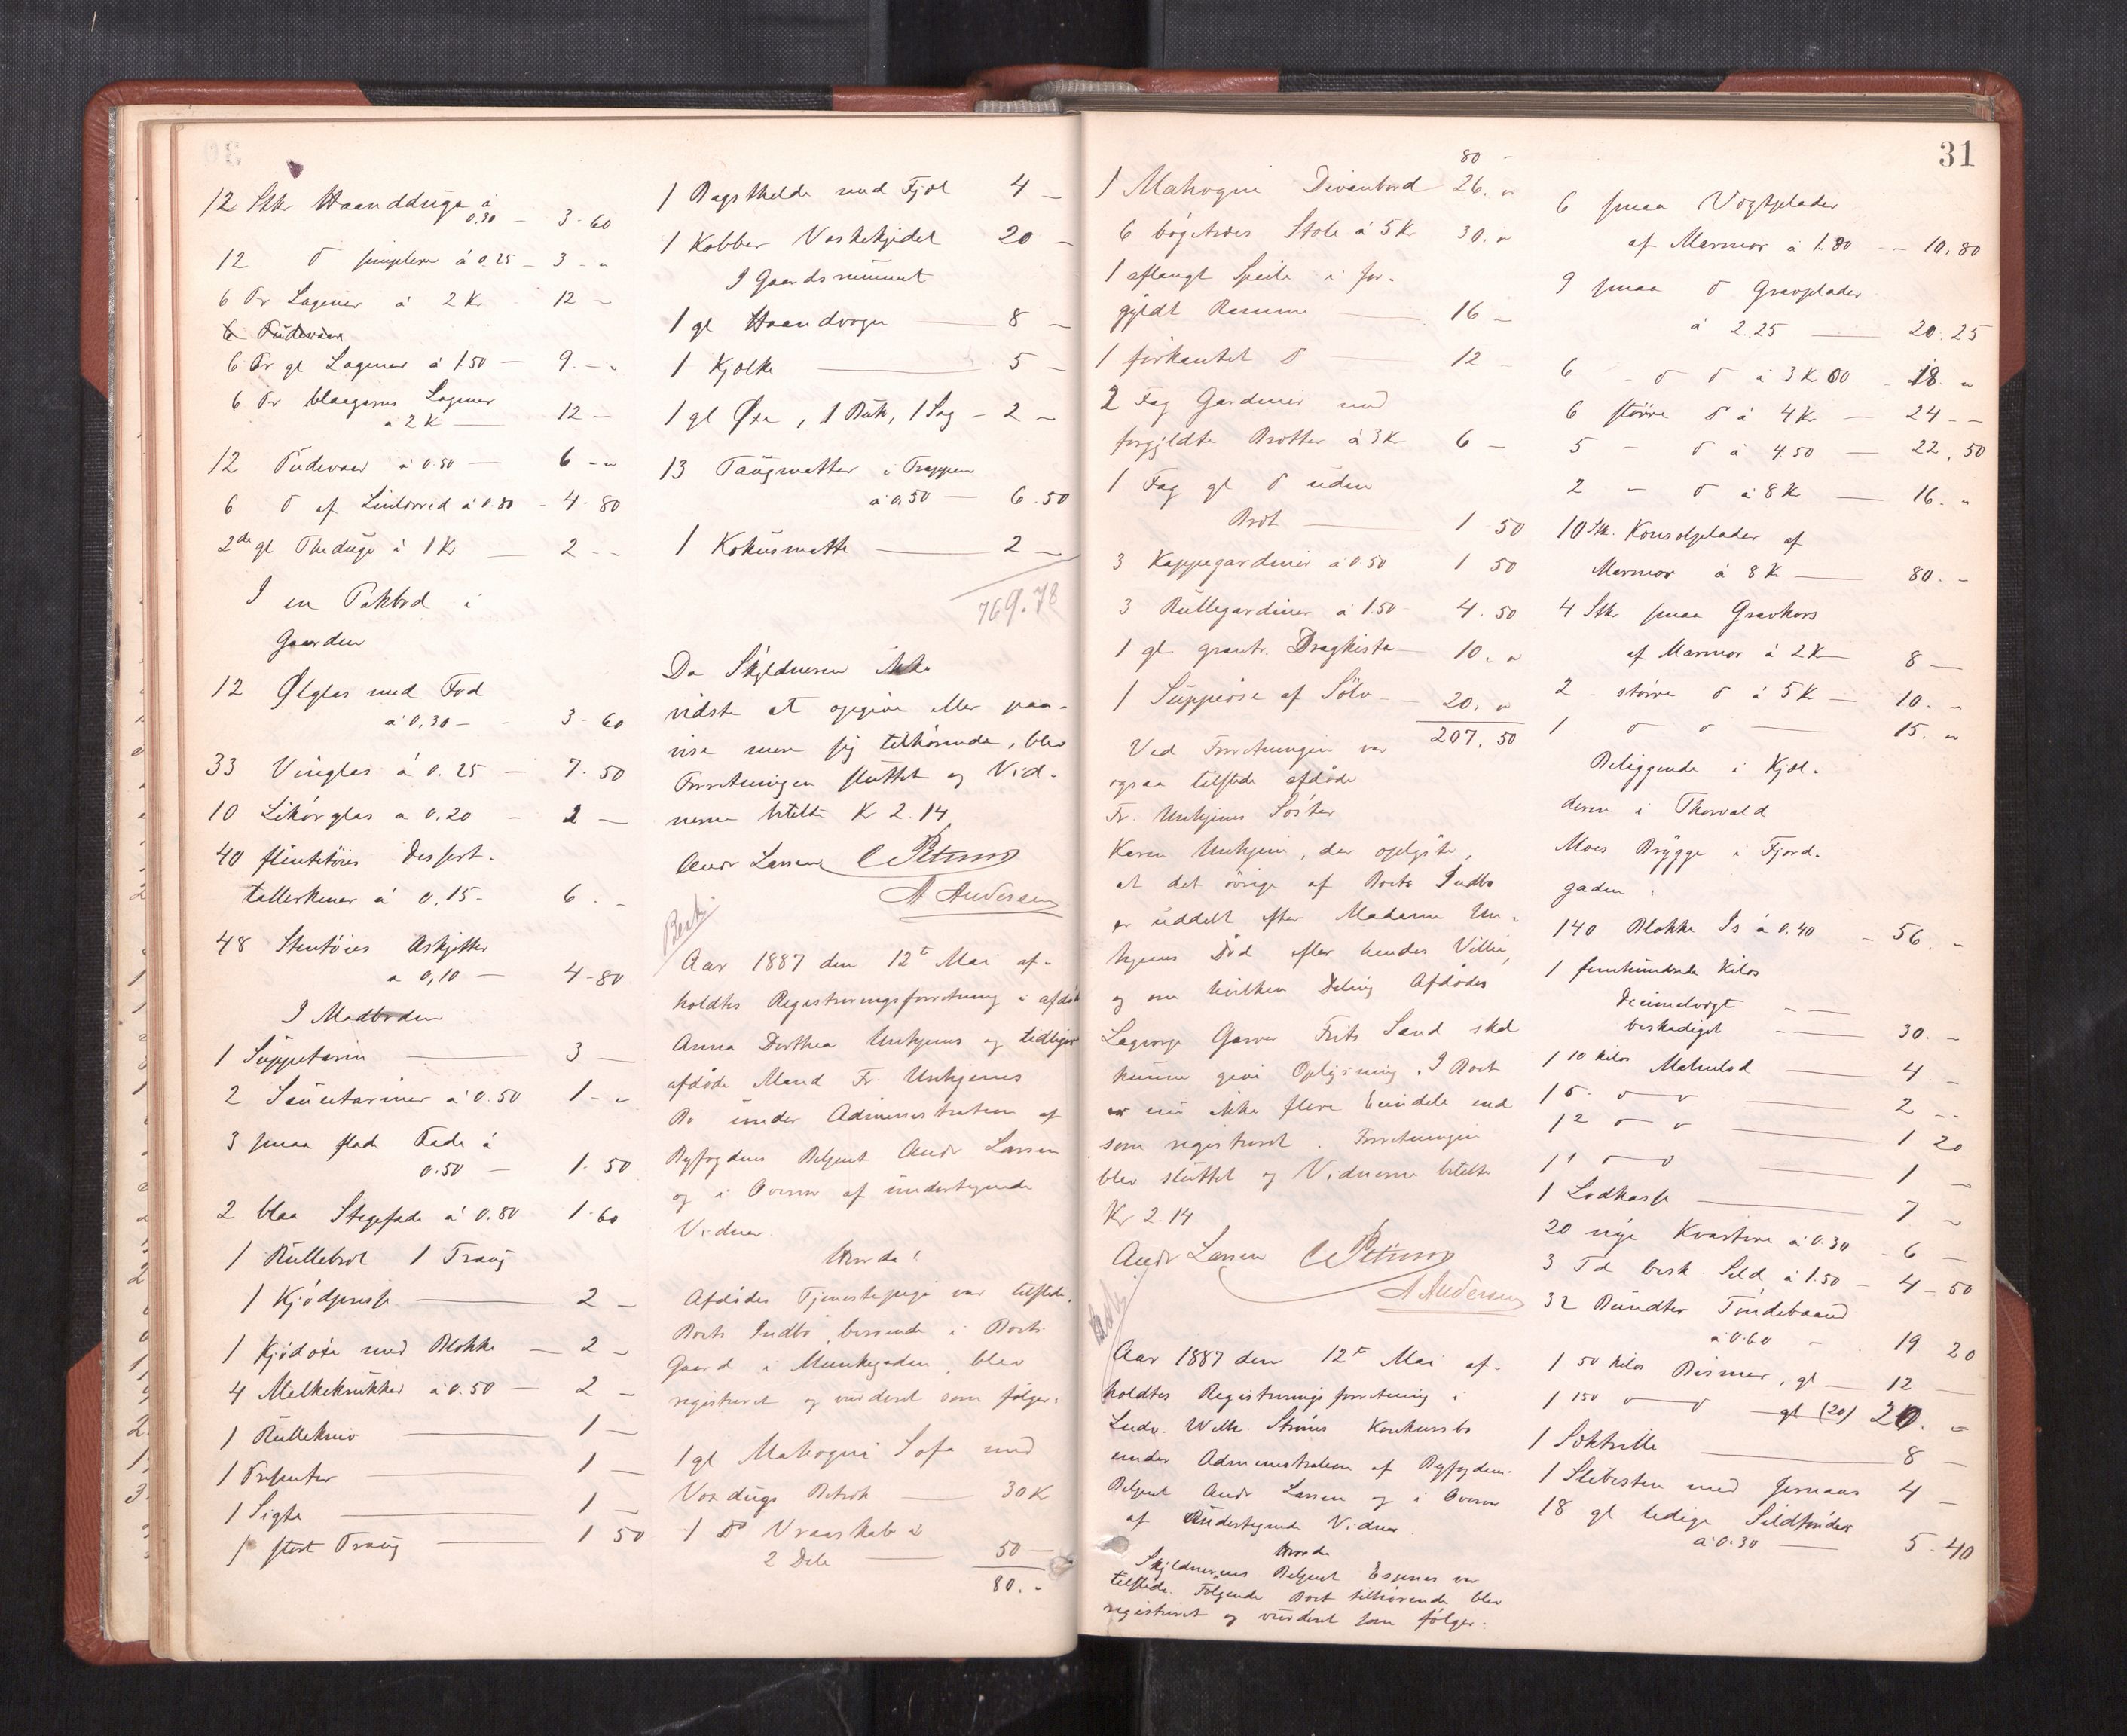 12 Stkr Haandduge à
0,30 — 3-60
12 d simplere à 0.25 — 3 - "
6 Pr Lagener à 2 Kr 12 —
6 Pudevaar
6 Pr gl Lagener à 1.50 — 9. - "
6 Pr blaagarns Lagener
à 2 K — 12 —
12 Pudevaar à 0.50 — 6 - "
6 d af Linlærred à 0.80 - 4-80
2 gl Theduge à 1 Kr — 2 - -
I en Pakbod i
Gaarden
12 Ølglas med Fod
à 0,30 - - 3-60
33 Vinglas à 0.25 — 7.50
10 Likørglas a 0,20 - 2 —
40 flintetøies Dessert-
tallerkener à 0,15- 6. -
48 Stentøies Askjetter
a 0,10 — 4-80
I Madboden
1 Suppeterin — 3 —
2 Sauceteriner à 0.50 1 - "
3 smaa flade Fade à
0.50 — 1.50
2 blaa Stegefade à 0.80 1-60
1 Rullebret 1 Traug
1 Kjødpresse — 2 —
1 Kjødøxe med Blokke — 2 -
4 Melkekrukker à 0.50 — 2 —
1 Rullekniv — 1 —
1 — 1 —
1 Sigte — 1 —
1 stort Traug — 1 50
1 Bagsthelde med Fjøl 4 —
1 Kobber Vaskekjedel 20 —
I Gaardsrummet
1 gl Haandvogn — 8 —
1 Kjælke — 5 —
1 gl Øxe, 1 , 1 Sag - 2 —
13 Taugmatter i Trappen
à 0,50 — 6.50
1 Kokusmatte — 2 —
769.78
Da Skyldneren ikke
vidste at opgive eller paa-
vise mere sig tilhørende, blev
Forretningen sluttet og Vid-
nerne betalt Kr 2.14
Andr Larsen C Petersen
A Andersen
Aar 1887 den 12te Mai af-
holdtes Registreringsforretning i afdøde
Anna Dorthea Unhjems og tidligere
afdøde Mand Fr. Unhjems
Bo under Administration af
Byfogdens Betjent Andr Larsen
og i Overvær af undertegnede
Vidner.
Hvorda!
Afdødes Tjenestepige var tilstede.
Boets Indbo, beroende i Boets
Gaard i Munkegaden, blev
registreret og vurderet som følger:
1 gl Mahogni Sofa med
Voxdugs Betræk — 30 K
1 D Vraaskab i
2 Dele — 50 —
80. -
31
80 -
1 Mahogni Divanbord 26. "
6 bøgetræes Stole à 5 K 30. "
1 aflangt Speile i for-
gyldt Ramme — 16 —
1 firkantet d — 12 -
2 Fag Gardiner med
forgyldte Brætter à 3 K 6 —
1 Fag gl d uden
Bræt — 1 50
3 Kappegardiner à 0.50 1 50
3 Rullegardiner à 1.50 4.50
1 gl grantr. Dragkiste — 10. "
1 Suppeøse af Sølv — 20. "
207,50
Ved Forretningen var
ogsaa tilstede afdøde
Fr. Unhjems Søster
Karen Unhjem, der oplyste,
at det øvrige af Boets Indbo
er uddelt efter Madame Un-
hjems Død efter hendes Villie,
og om hvilken Deling Afdødes
Lagværge Garver Frits Sand skal
kunne give Oplysning. I Boet
er nu ikke flere Eiendele end
som registreret. Forretningen
blev sluttet og Vidnerne betalte
Kr 2.14
Andr Larsen C Petersen
A Andersen
Aar 1887 den 12te Mai af-
holdtes Registreringsforretning i
Ludv. Wilh. Strøms Konkursbo
under Administration af Byfogdens
Betjent Andr Larsen og i Overvær
af Undertegnede Vidner.
Hvorda
Skyldnerens Betjent Espenes var
tilstede. Følgende Boet tilhørende blev
registreret og vurderet som følger:
6 smaa Vægtplader
af Marmor à 1.80 - - 10,80
9 smaa d Gravplader
à 2.25 — 20.25
6 - d d à 3 K 00 - 18. "
6 større d à 4 K — 24 - -
5 - d à 4.50 — 22,50
2 - d à 8 K — 16. "
10 Stk. Konsolplader af
Marmor à 8 K — 80. -
4 Stkr smaa Gravkors
af Marmor à 2 K — 8 —
2 - større d à 5 K — 10. -
1 d d — 15. "
Beliggende i Kjæl-
deren i Thorvald
Moes Brygge i Fjord-
gaden:
140 Blokke Is à 0,40 - 56. -
1 femhundrede Kilos
Decimalvægt
beskadiget — 30. -
1 10 kilos Metallod — 4 -
1 5 - d d — 2 - -
1 2 d d — 1 20
1 1 d d — 1 —
1 Lodkasse — 7 -
20 nye Kvartere à 0.30 - 6 —
3 Td besk. Sild à 1.50 — 4-50
32 Bundter Tøndebaand
à 0.60 - 19. 20
1 50 kilos Bismer, gl — 12 —
1 150 d d gl (20) 20. -
1 Sæktrille — 8 —
1 Slibesten med Jernaas 4 —
18 gl ledige Sildtønder
à 0.30 — 5-40